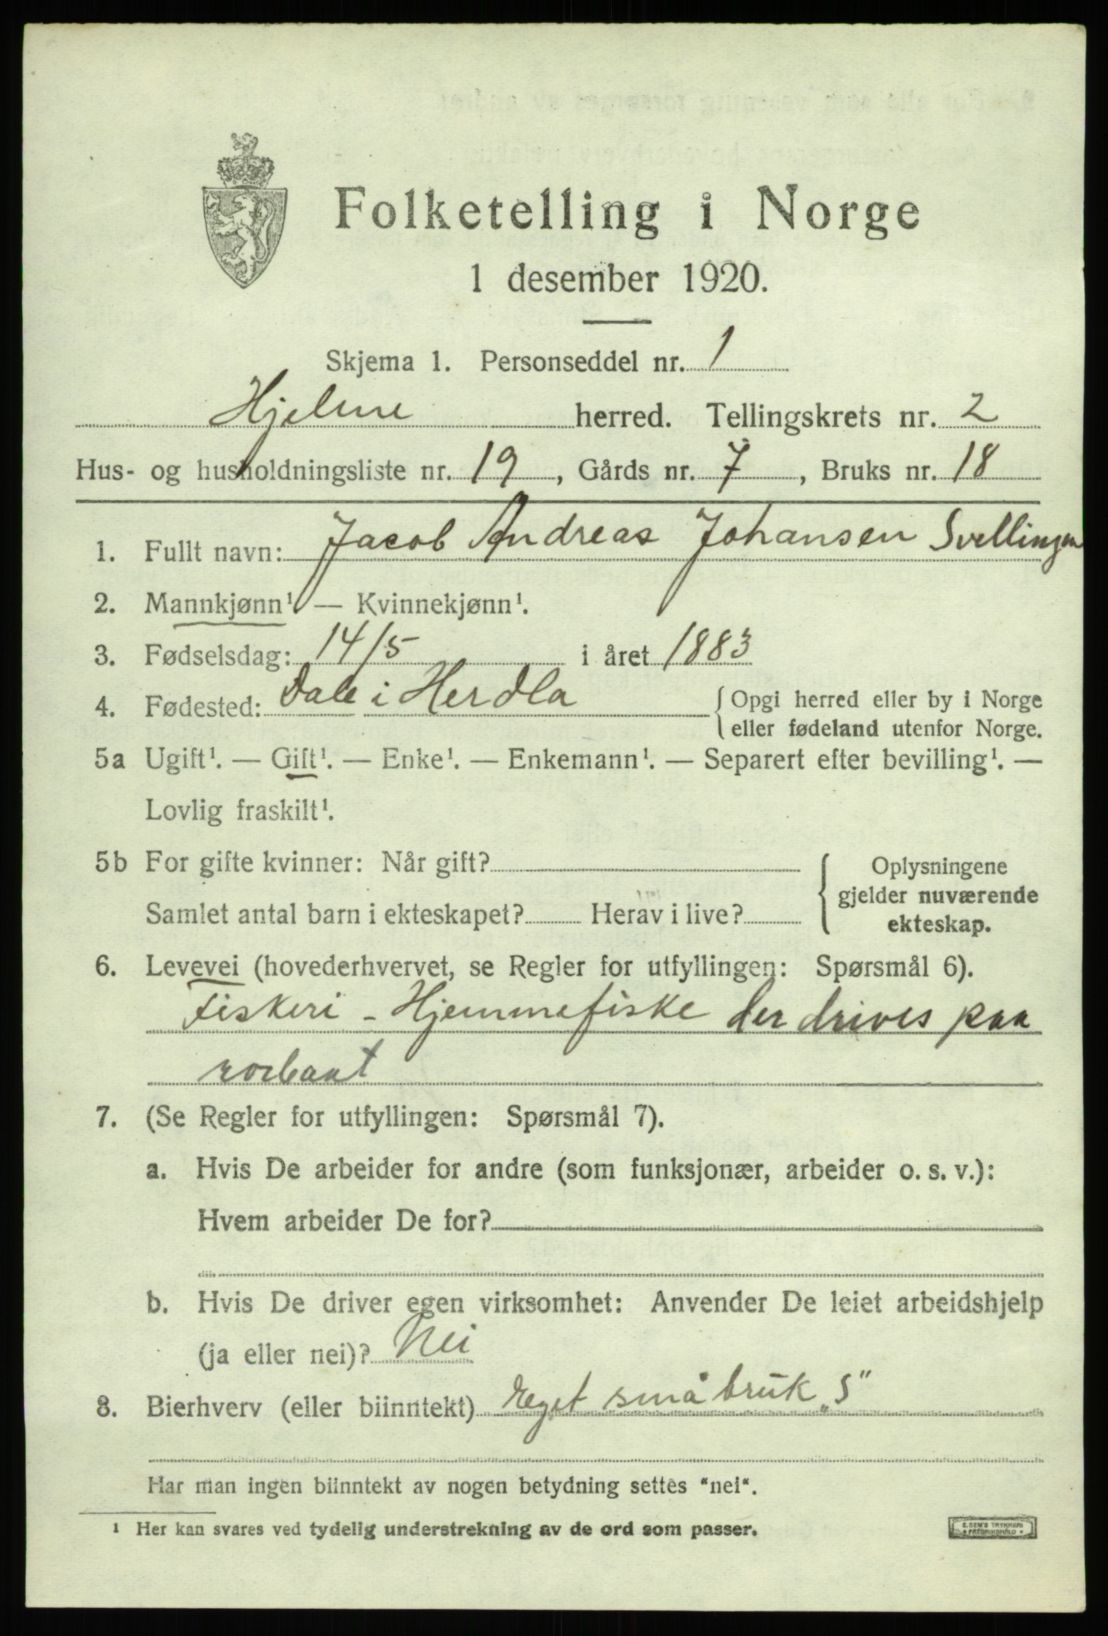 Folketelling i Norge
1 desember 1920.
Skjema 1. Personseddel nr. 1
Hjelme herred. Tellingskrets nr. 2
Hus- og husholdningsliste nr. 19, Gårds nr. 7, Bruks nr. 18
1. Fullt navn: Jacob Andreas Johansen Svellingen
2. Mannkjønn¹. — Kvinnekjønn¹.
3. Fødselsdag: 14/5 i året 1883
4. Fødested: Dale i Herdla { Opgi herred eller by i Norge
eller fødeland utenfor Norge.
5a Ugift¹. — Gift¹. — Enke¹. — Enkemann¹. — Separert efter bevilling¹. —
Lovlig fraskilt¹.
5b For gifte kvinner: Når gift?
Samlet antal barn i ekteskapet? Herav i live?
Oplysningene
gjelder nuværende
ekteskap.
6. Levevei (hovederhvervet, se Regler for utfyllingen: Spørsmål 6).
Fiskeri - Hjemmefiske der drives paa
rorbaat
7. (Se Regler for utfyllingen: Spørsmål 7).
a. Hvis De arbeider for andre (som funksjonær, arbeider o. s. v.):
Hvem arbeider De for?
b. Hvis De driver egen virksomhet: Anvender De leiet arbeidshjelp
(ja eller nei)? Nei
8. Bierhverv (eller biinntekt) Eget småbruk „S”
Har man ingen biinntekt av nogen betydning settes "nei".
¹ Her kan svares ved tydelig understrekning av de ord som passer.